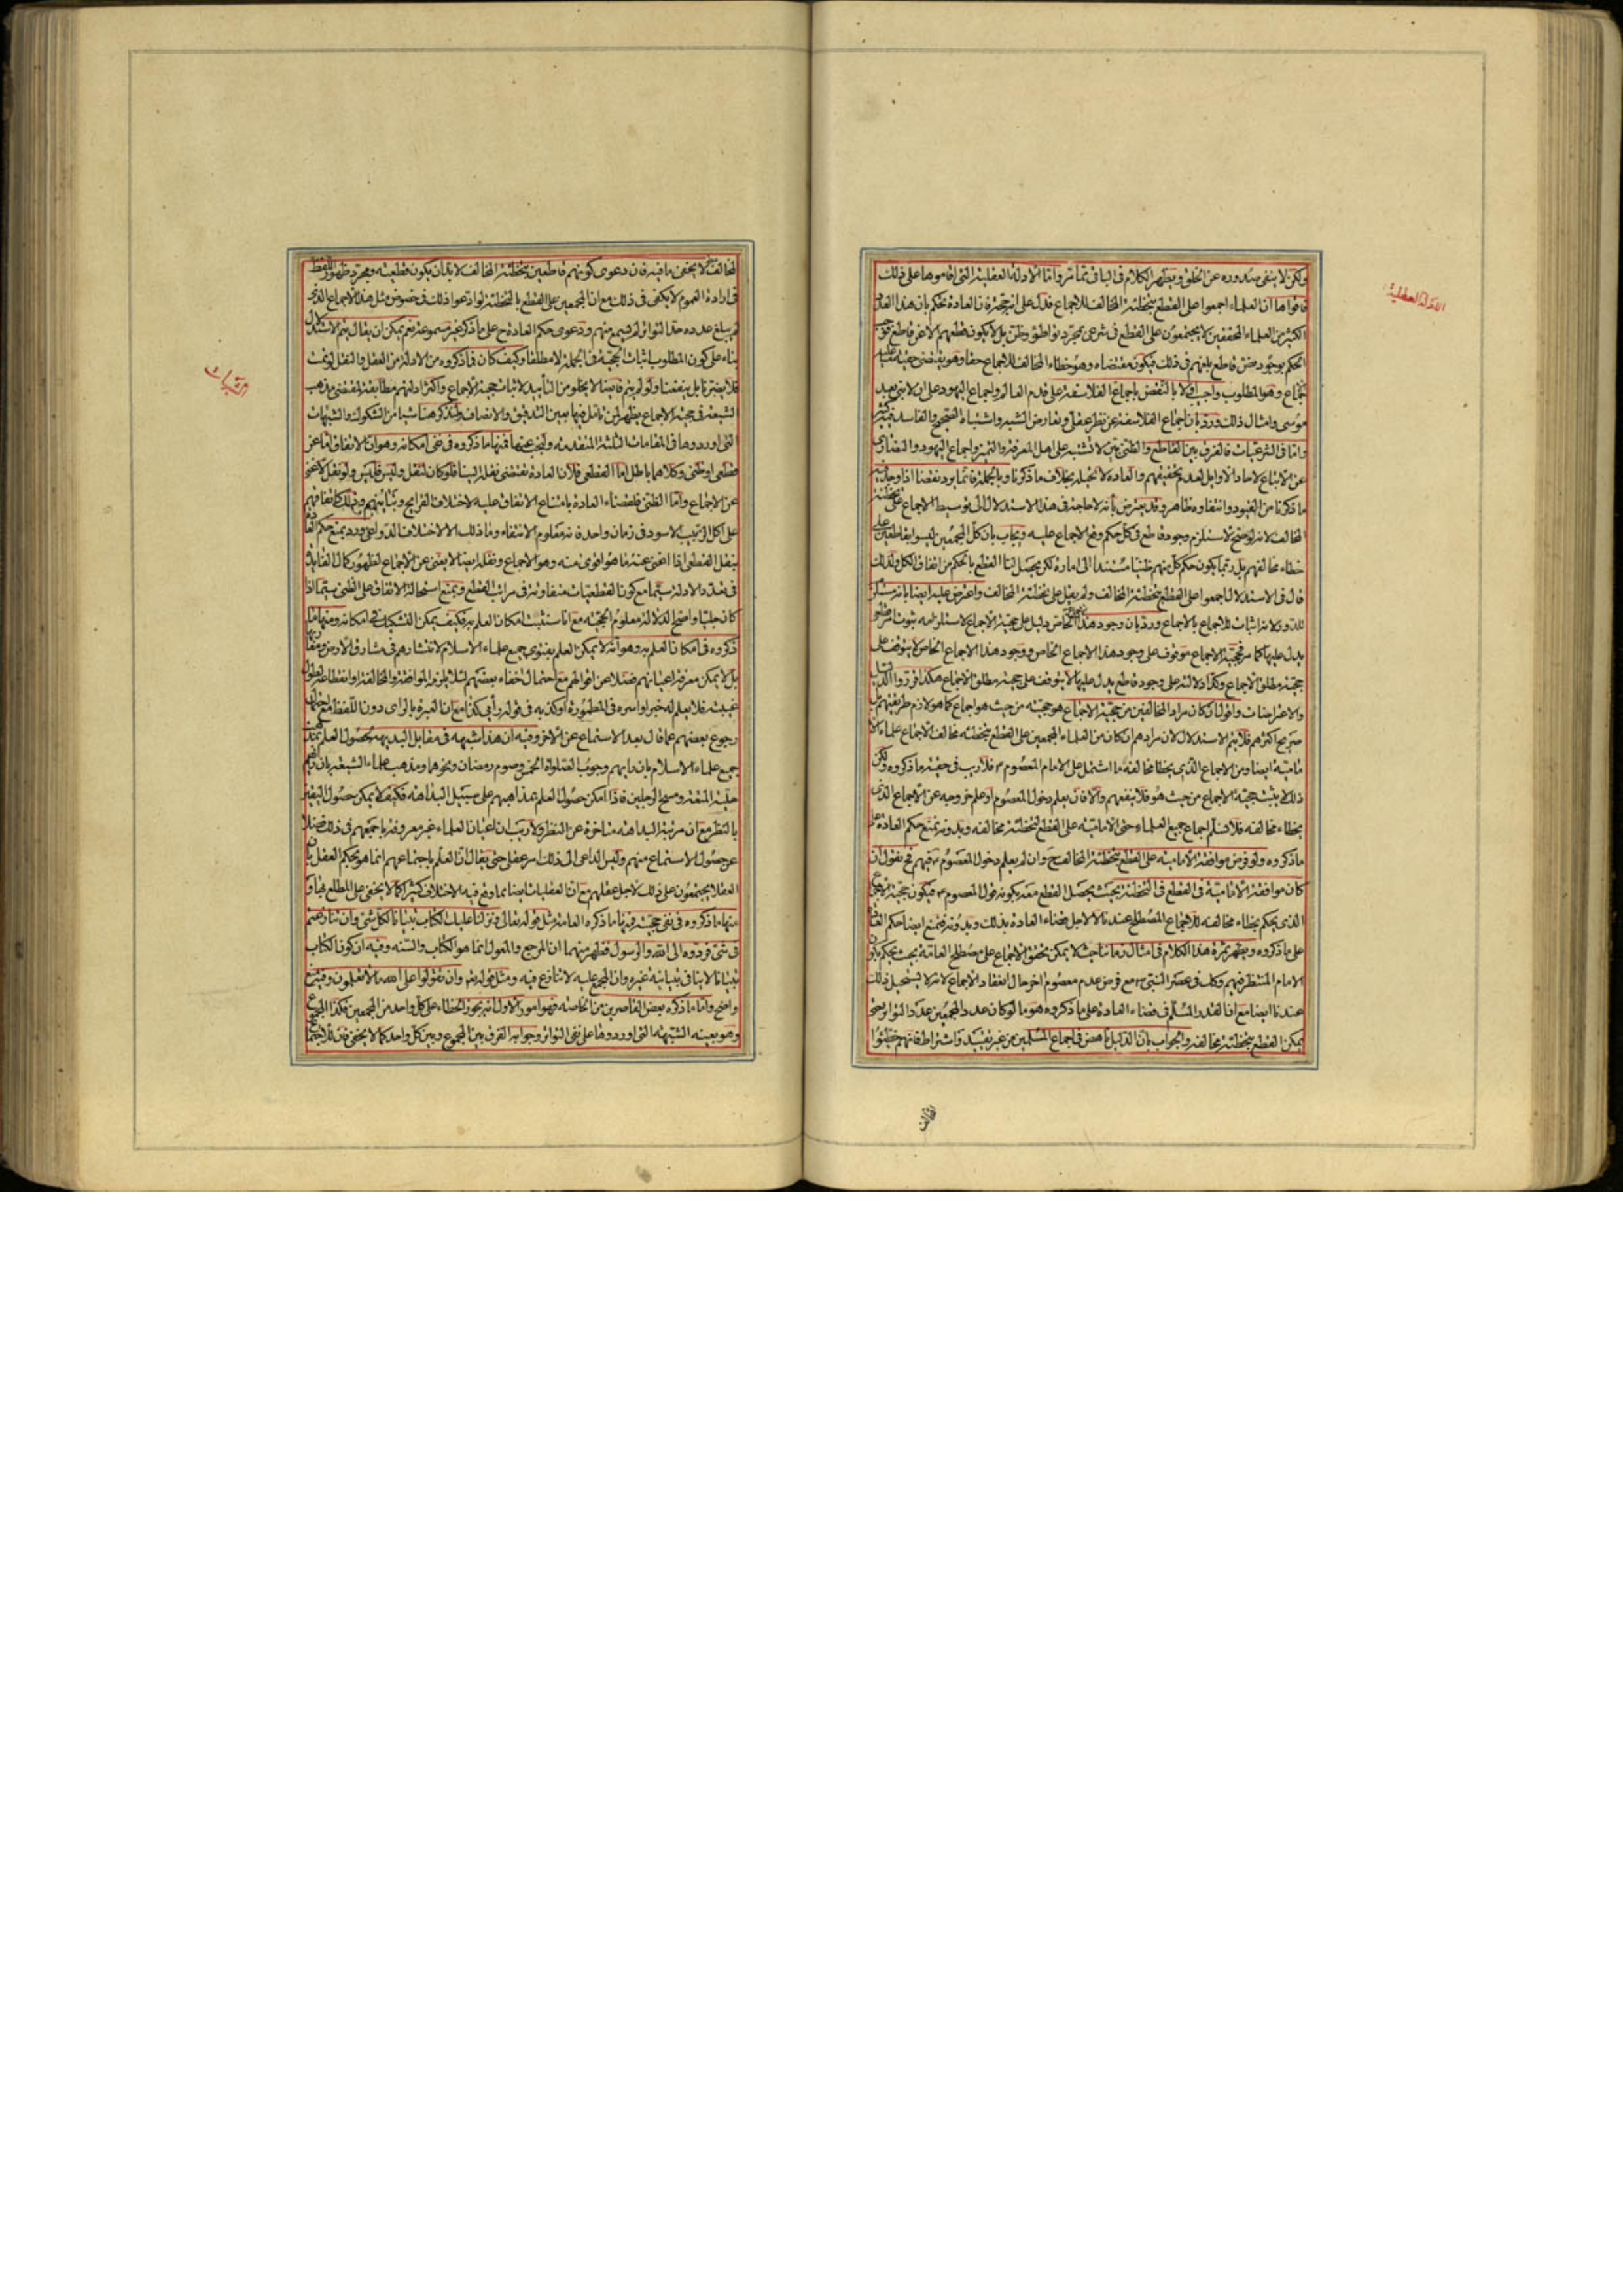 الادلة العقلية
ولكن لا ينفى صدوره عن الخلق ويظهر الكلام فى الباقى تماثر واما الادلة العقلية التى اقاموها على ذلك
فاقواها ان العلماء اجمعوا على القطع بتخطئة المخالف للاجماع فدل على انه حجة فان العادة تحكم بان هذا العدد
الكثير من العلماء المحققين لا يجتمعون على القطع فى شرعى بمجرد تواطؤ وظن بل لا يكون قطعهم الا عن قاطع فوجب
الحكم بوجود نص قاطع بلغهم فى ذلك فيكون مقتضاه وهو خطاء المخالف للاجماع حقا وهو يقتضى حقية ما عليه
الاجماع وهو المطلوب واجيب اولا بالنقض باجماع الفلاسفة على قدم العالم واجماع اليهود على ان لا نبى بعد
موسى وامثال ذلك ورد بان اجماع الفلاسفة عن نظر عقلى وتعارض الشبه واشتباه الصحيح والفاسد فيه كثير
واما فى الشرعيات فالفرق بين القاطع والظنى بين لا تشتبه على اهل المعرفة والتميز واجماع اليهود والنصارى
عن الاتباع لآحاد الاوايل لعدم تحقيقهم والعادة لا تحيله بخلاف ما ذكرنا وبالجملة فانما يرد نقضا اذا وجد فيه
ما ذكرنا من القيود وانتفاؤه ظاهر وقد يعترض بانه لا حاجة فى هذا الاستدلال الى توسيط الاجماع على تخطئة
المخالف لانه لو صح لاستلزم وجود قاطع فى كل حكم وقع الاجماع عليه ويجاب بان كل المجمعين ليسوا بقاطعين على
خطاء مخالفهم بل ربما يكون حكم كل منهم ظنيا مستندا الى امارة لكن يحصل لنا القطع بالحكم من اتفاق الكل ولذلك
قال فى الاستدلال اجمعوا على القطع بتخطئة المخالف ولم يقل على تخطئة المخالف واعترض عليه ايضا بانه مستلزم
للدور لانه اثبات للاجماع بالاجماع ورد بان وجود هذا الاجماع الخاص دليل على حجية الاجماع لاستلزامه ثبوت امر
يدل عليها كما مر فحجية الاجماع موقوف على وجود هذا الاجماع الخاص ووجود هذا الاجماع الخاص لا يتوقف على
حجية مطلق الاجماع وكذا دلالته على وجود قاطع يدل عليها لا يتوقف على حجية مطلق الاجماع هكذا قرروا الدليل
والاعتراضات واقول ان كان مراد المخالفين من حجية الاجماع هو حجيته من حيث هو اجماع كما هو لازم طريقتهم بل
صريح اكثرهم فلا يتم الاستدلال لان مرادهم ان كان من العلماء المجمعين على القطع بتخطئة مخالف الاجماع علماء الا
مامية ايضا ومن الاجماع الذى يخطا مخالفه ما اشتمل على الامام المعصوم ع فلا ريب فى حقية ما ذكروه ولكن
ذلك لا يثبت حجية الاجماع من حيث هو فلا ينفعهم والا فان يعلم دخول المعصوم او علم خروجه عن الاجماع الذى
يخطاء مخالفه فلا نسلم اجماع جميع العلماء حتى الامامية على القطع لتخطئة مخالفه وبدونه نمنع حكم العادة على
ما ذكروه ولو فرض موافقة الامامية على القطع بتخطئة المخالف ح وان لم يعلم دخول المعصوم ع فيهم فح نقول ان
كان موافقة الامامية فى القطع فى التخطئة بحيث يحصل القطع معه بكونه قول المعصوم ع فيكون حجية الاجماع
الذى يحكم بخطاء مخالفه للاجماع المصطلح عندنا لا لاجل قضاء العادة بذلك وبدونه فنمنع ايضا حكم العادة
على ما ذكروه ويظهر ثمرة هذا الكلام فى امثال زماننا حيث لا يمكن تحقق الاجماع على مصطلح العامة بحيث يحكم بان
الامام المنتظر فيهم وكك فى عصر النبى ص مع فرض عدم معصوم اخر حال انعقاد الاجماع لانه لا يستحيل ذلك
عندنا ايضا مع ان القدر المسلم فى قضاء العادة على ما ذكروه هو ما لو كان عدد المجمعين عدد التواتر حتى
يمكن القطع بتخطئة مخالفه والجواب بان الدليل ناهض فى اجماع المسلمين من غير تقييد واشتراط فانهم خطئوا
المخالف
المخالف لا يخفى ما فيه فان دعوى كونهم قاطعين بتخطئة المخالف لا بد ان يكون قطعية ومجرد ظهور اللفظ
فى ارادة العموم لا يكفى فى ذلك مع ان المجمعين على القطع بالتخطئة لو ادعوا ذلك فى خصوص مثل هذا الاجماع الذى
لم يبلغ عدده حد التواتر لم يسمع منهم ودعوى حكم العادة ح على ما ذكر غير مسموعة نعم يمكن ان يقال يتم الاستدلال
بناء على كون المطلوب اثبات الحجية فى الجملة لا مطلقا وكيف كان فما ذكروه من الادلة من العقل والنقل لو تمت
فلا يضرنا بل ينفعنا ولو لم يتم فايضا لا يخلو من التأييد لاثبات حجية الاجماع واكثر ادلتهم مطابقة لمقتضى مذهب
الشيعة فى حجية الاجماع يظهر لمن تامل فيها بعين التدقيق والانصاف ولنذكر هنا شيئا من الشكوك والشبهات
التى اوردوها فى المقامات الثلثة المتقدمة ولنجب عنها فمنها ما ذكروه فى نفى امكانه وهو ان الاتفاق اما عن
قطعى او ظنى وكلاهما باطل اما القطعى فلان العادة تقتضى نقله الينا فلو كان لنقل وليس فليس ولو نقل لاغنى
عن الاجماع واما الظنى فلقضاء العادة بامتناع الاتفاق عليه لاختلاف القرايح وتباينهم وذلك كاتفاقهم
على اكل الزبيب الاسود فى زمان واحد فانه معلوم الانتفاء وما ذلك الا لاختلاف الدواعى ورد بمنع حكم العادة
بنقل القطعى اذا اغنى عنه ما هو اقوى منه وهو الاجماع ونقله ايضا لا يغنى عن الاجماع لظهور كمال الفايدة
فى تعدد الادلة سيما مع كون القطعيات متفاوتة فى مراتب القطع ونمنع استحالة الاتفاق على الظنى سيما اذا
كان جليا واضح الدلالة معلوم الحجية مع انا سنثبت امكان العلم به فكيف يمكن التشكيك فى امكانه ومنها ما
ذكروه فى امكان العلم به وهو انه لا يمكن العلم بفتوى جميع علماء الاسلام لانتشارهم فى مشارق الارض ومغاربها
بل لا يمكن معرفة اعيانهم فضلا عن اقوالهم مع احتمال اخفاء بعضهم لئلا يلزمه الموافقة والمخالفة او انقطاعه لطول
غيبته فلا يعلم له خبر او اسره فى المطمورة او كذبه فى قوله رأيى كذا مع ان العبرة بالراى دون اللفظ مع احتمال
رجوع بعضهم عما قال بعد الاستماع عن الاخر وفيه ان هذا شبهة فى مقابل البديهة لحصول العلم بمذهب
جميع علماء الاسلام بان دأبهم وجوب الصلوات الخمس وصوم رمضان ونحوهما ومذهب علماء الشيعة بان دأبهم
حلية المتعة ومسح الرجلين فاذا امكن حصول العلم بمذاهبهم على سبيل البداهة فكيف لا يمكن حصول اليقين
بالنظر مع ان مرتبة البداهة متاخرة عن النظر ولا ريب ان اعيان العلماء غير معروفة باجمعهم فى ذلك فضلا
عن حصول الاستماع منهم وليس الداعى الى ذلك امر عقلى حتى يقال ان العلم باجتماعهم انما هو بحكم العقل بان
العقلاء يجتمعون على ذلك لاجل عقلهم مع ان العقليات ايضا مما وقع فيه الاختلاف كثيرا كما لا يخفى على المطلع بها
منها ما ذكروه فى نفى حجيته فمنها ما ذكره العامة مثل قوله تعالى ونزلنا عليك الكتاب تبيانا لكل شئ وان تنازعتم
فى شئ فردوه الى الله والرسول فظهر منهما ان المرجع والمعول انما هو الكتاب والسنة وفيه ان كون الكتاب
تبيانا لا ينافى تبيانية غيره وان المجمع عليه لا تنازع فيه ومثل قوله تعالى وان تقولوا على الله ما لا تعلمون وفيه منع
واضح واما ما ذكره بعض القاصرين من الخاصة فهو امور الاول انه يجوز الخطاء على كل واحد من المجمعين فكذا المجموع
وهو بعينه الشبهة التى اوردوها على نفى التواتر وجوابه الفرق بين المجموع وبين كل واحد كما لا يخفى فان للاجتماع